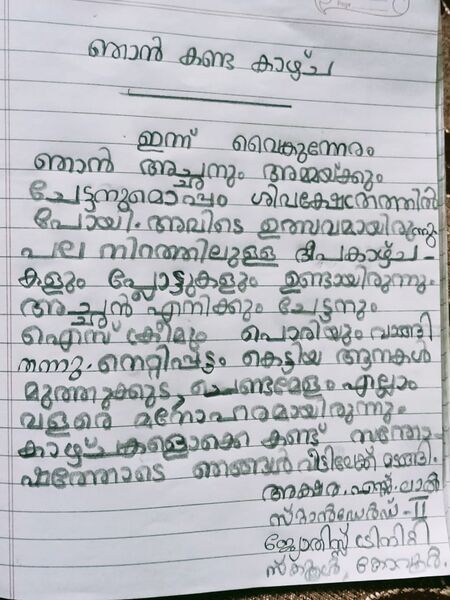 ഞാൻ കണ്ട കാഴ്ച
ഇന്ന് വൈകുന്നേരം
ഞാൻ അച്ഛനും അമ്മയ്ക്കും
ചേട്ടനുമൊപ്പം ശിവക്ഷേത്രത്തിൽ
പോയി. അവിടെ ഉത്സവമായിരുന്നു.
പല നിറത്തിലുള്ള ദീപകാഴ്ച-
കളും പ്ലോട്ടുകളും ഉണ്ടായിരുന്നു.
അച്ഛൻ എനിക്കും ചേട്ടനും
ഐസ് ക്രീമും പൊരിയും വാങ്ങി
തന്നു. നെറ്റിപ്പട്ടം കെട്ടിയ ആനകൾ
മുത്തുക്കുട, ചെണ്ടമേളം എല്ലാം
വളരെ മനോഹരമായിരുന്നു.
കാഴ്ചകളൊക്കെ കണ്ട് സന്തോ-
ഷത്തോടെ ഞങ്ങൾ വീട്ടിലേക്ക് മടങ്ങി.
അക്ഷര. എസ്. ലാൽ
സ്റ്റാൻഡേർഡ് - II
ജ്യോതിസ്സ് ട്രിനിറ്റി
സ്കൂൾ,